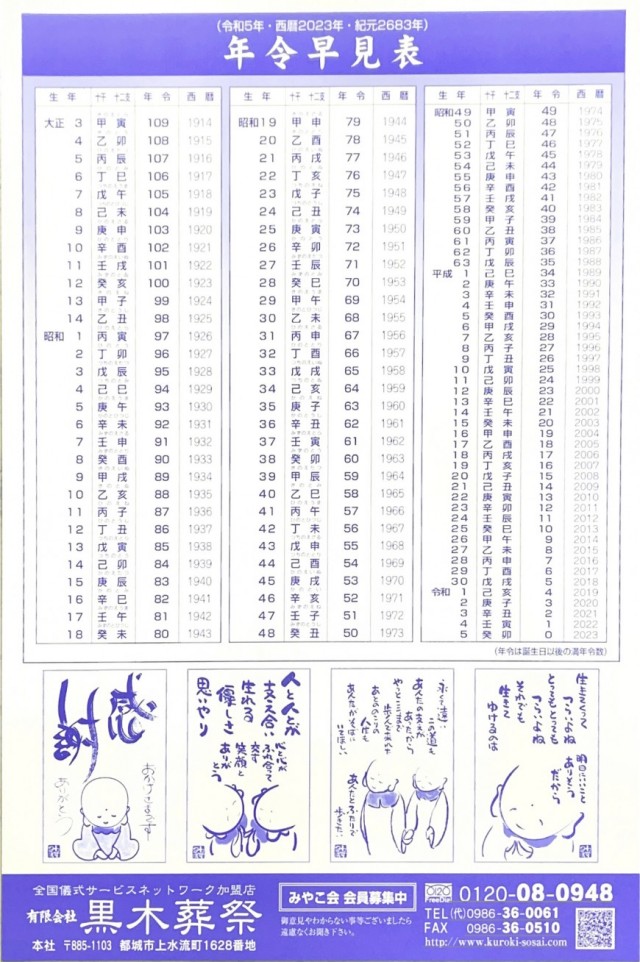 (令和5年・西暦2023年・紀元2683年)
年令早見表
生年 十干 十二支 年令 西暦
大正 3 甲寅 109 1914
4 乙卯 108 1915
5 丙辰 107 1916
6 丁巳 106 1917
7 戊午 105 1918
8 己未 104 1919
9 庚申 103 1920
10 辛酉 102 1921
11 壬戌 101 1922
12 癸亥 100 1923
13 甲子 99 1924
14 乙丑 98 1925
昭和 1 丙寅 97 1926
2 丁卯 96 1927
3 戊辰 95 1928
4 己巳 94 1929
5 庚午 93 1930
6 辛未 92 1931
7 壬申 91 1932
8 癸酉 90 1933
9 甲戌 89 1934
10 乙亥 88 1935
11 丙子 87 1936
12 丁丑 86 1937
13 戊寅 85 1938
14 己卯 84 1939
15 庚辰 83 1940
16 辛巳 82 1941
17 壬午 81 1942
18 癸未 80 1943
生年 十干 十二支 年令 西暦
昭和19 甲申 79 1944
20 乙酉 78 1945
21 丙戌 77 1946
22 丁亥 76 1947
23 戊子 75 1948
24 己丑 74 1949
25 庚寅 73 1950
26 辛卯 72 1951
27 壬辰 71 1952
28 癸巳 70 1953
29 甲午 69 1954
30 乙未 68 1955
31 丙申 67 1956
32 丁酉 66 1957
33 戊戌 65 1958
34 己亥 64 1959
35 庚子 63 1960
36 辛丑 62 1961
37 壬寅 61 1962
38 癸卯 60 1963
39 甲辰 59 1964
40 乙巳 58 1965
41 丙午 57 1966
42 丁未 56 1967
43 戊申 55 1968
44 己酉 54 1969
45 庚戌 53 1970
46 辛亥 52 1971
47 壬子 51 1972
48 癸丑 50 1973
生年 十干 十二支 年令 西暦
昭和49 甲寅 49 1974
50 乙卯 48 1975
51 丙辰 47 1976
52 丁巳 46 1977
53 戊午 45 1978
54 己未 44 1979
55 庚申 43 1980
56 辛酉 42 1981
57 壬戌 41 1982
58 癸亥 40 1983
59 甲子 39 1984
60 乙丑 38 1985
61 丙寅 37 1986
62 丁卯 36 1987
63 戊辰 35 1988
平成 1 己巳 34 1989
2 庚午 33 1990
3 辛未 32 1991
4 壬申 31 1992
5 癸酉 30 1993
6 甲戌 29 1994
7 乙亥 28 1995
8 丙子 27 1996
9 丁丑 26 1997
10 戊寅 25 1998
11 己卯 24 1999
12 庚辰 23 2000
13 辛巳 22 2001
14 壬午 21 2002
15 癸未 20 2003
16 甲申 19 2004
17 乙酉 18 2005
18 丙戌 17 2006
19 丁亥 16 2007
20 戊子 15 2008
21 己丑 14 2009
22 庚寅 13 2010
23 辛卯 12 2011
24 壬辰 11 2012
25 癸巳 10 2013
26 甲午 9 2014
27 乙未 8 2015
28 丙申 7 2016
29 丁酉 6 2017
30 戊戌 5 2018
令和 1 己亥 4 2019
2 庚子 3 2020
3 辛丑 2 2021
4 壬寅 1 2022
5 癸卯 0 2023
(年令は誕生日以後の満年令数)
感謝
おかげさまです
ありがとう
人と人が
支え合い
生れる
優しさ
思いやり
心と心が
ふれ合て
交す
笑顔と
ありがとう
永くて遠い
この道も
あんたの支えが
あったから
やっとここまで
歩んでこれた
あとののこりの
人生も
あんたがそばに
いてほしい
あんたとふたりで
歩きたい
生きてくって
つらいよね
とってもとっても
つらいよね
それでも
生きて
ゆけるのは
明日にいいこと
ありそう
だから
全国儀式サービスネットワーク加盟店
有限会社 黒木葬祭
本社 〒885-1103 都城市上水流町1628番地
みやこ会 会員募集中
御意見やわからない事等ございましたら
遠慮なくお聞き下さい。
FreeDial 0120-08-0948
TEL(代)0986-36-0061
FAX 0986-36-0510
http://www.kuroki-sosai.com/